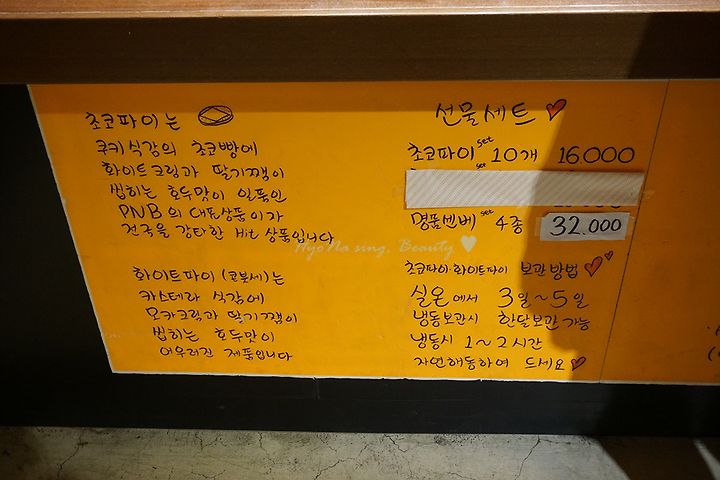 초코파이는
쿠키식감의 초코빵에
화이트크림과 딸기쨈이
씹히는 호두맛이 일품인
PNB의 대표상품이자
전국을 강타한 Hit 상품입니다
화이트파이 (코봇세)는
카스테라 식감에
모카크림과 딸기쨈이
씹히는 호두맛이
어우러진 제품입니다
선물세트
초코파이 set 10개 16.000
set
명품센베 set 4종 32.000
초코파이·화이트파이 보관방법
실온에서 3일~5일
냉동보관시 한달보관 가능
냉동시 1~2시간
자연해동하여 드세요
HyoNa sing. Beauty